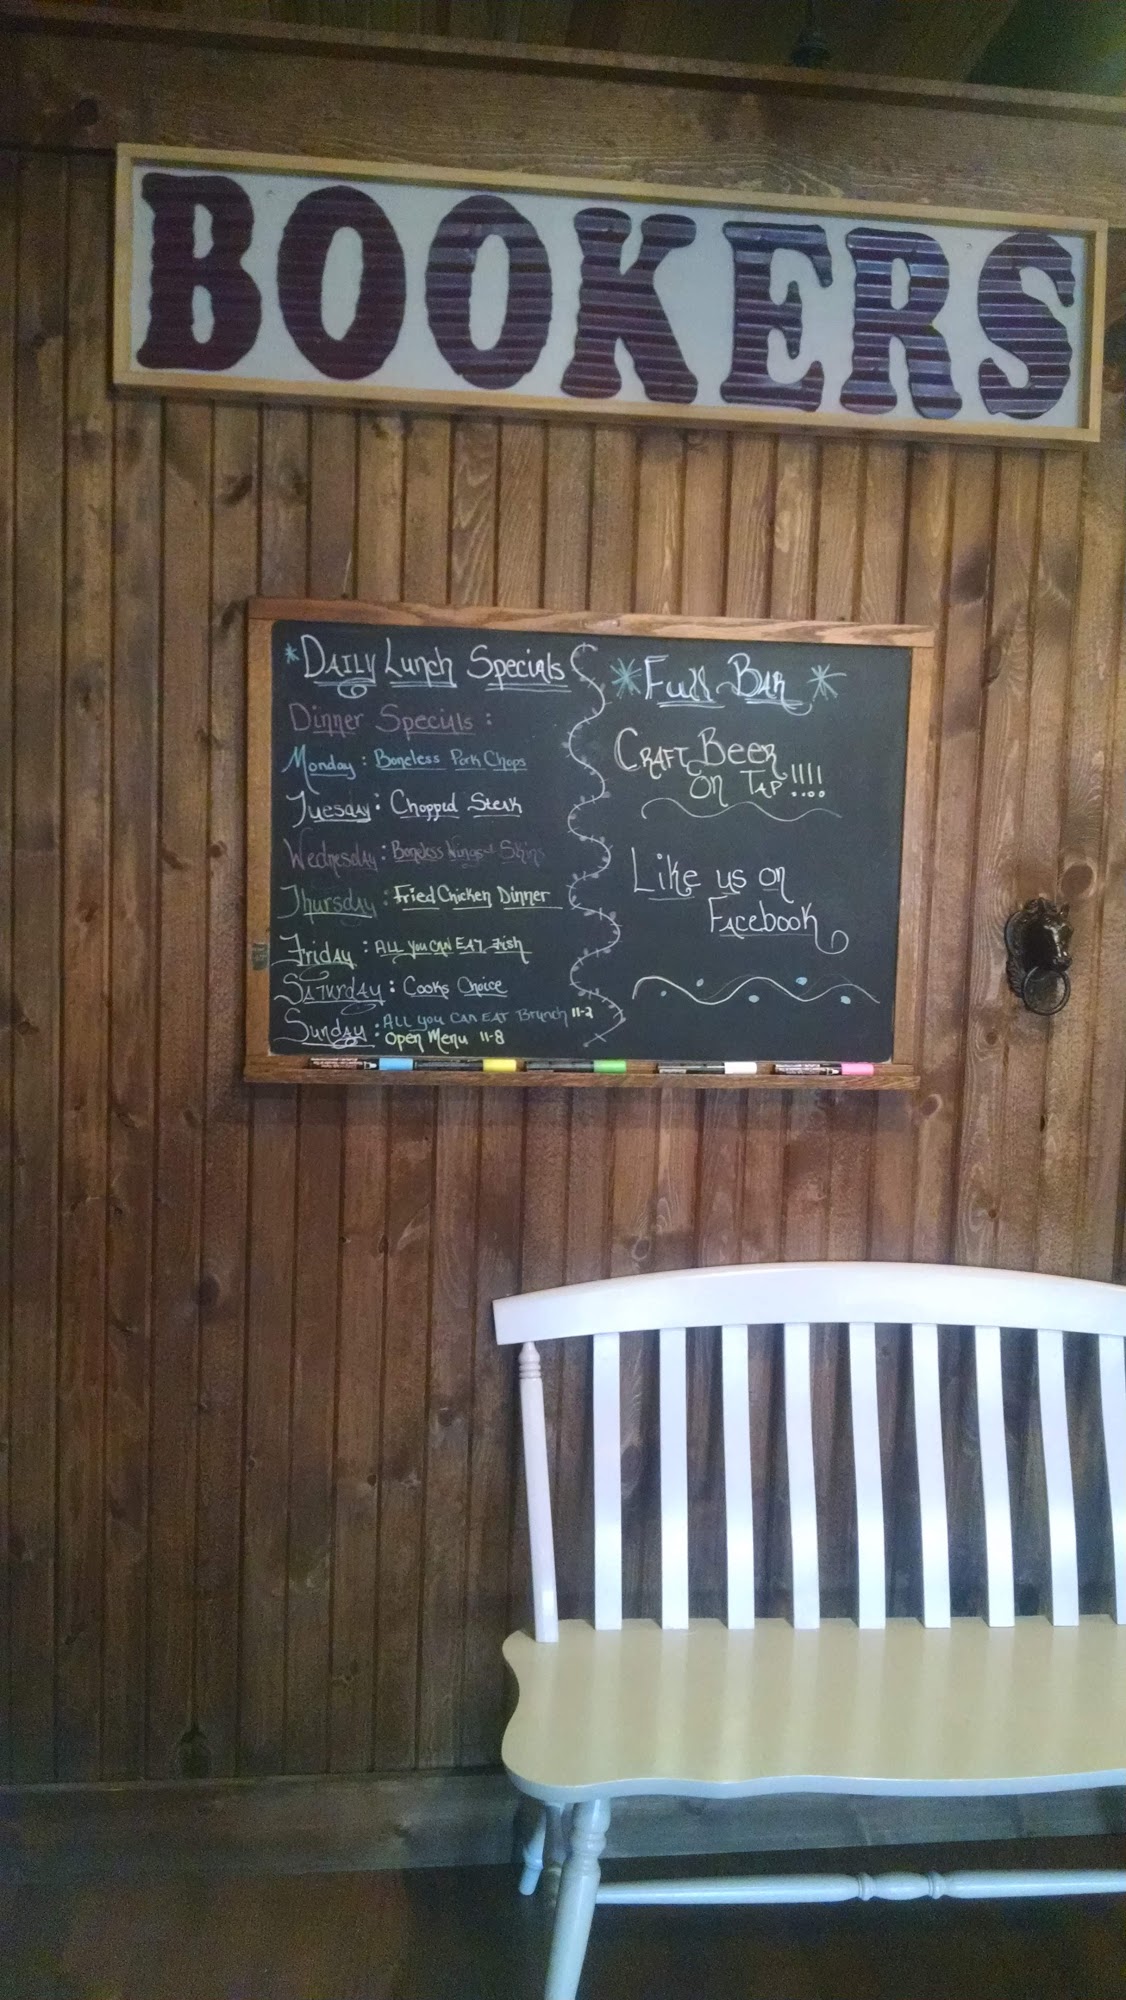 BOOKERS
*Daily Lunch Specials
Dinner Specials:
Monday: Boneless Pork Chops
Tuesday: Chopped Steak
Wednesday: Boneless Wings & Skins
Thursday: Fried Chicken Dinner
Friday: All you can eat Fish
Saturday: Cooks Choice
Sunday: All you can eat Brunch 11-2
Open Menu 11-8
*Full Bar*
Craft Beer
on Tap!!!!
Like us on
Facebook